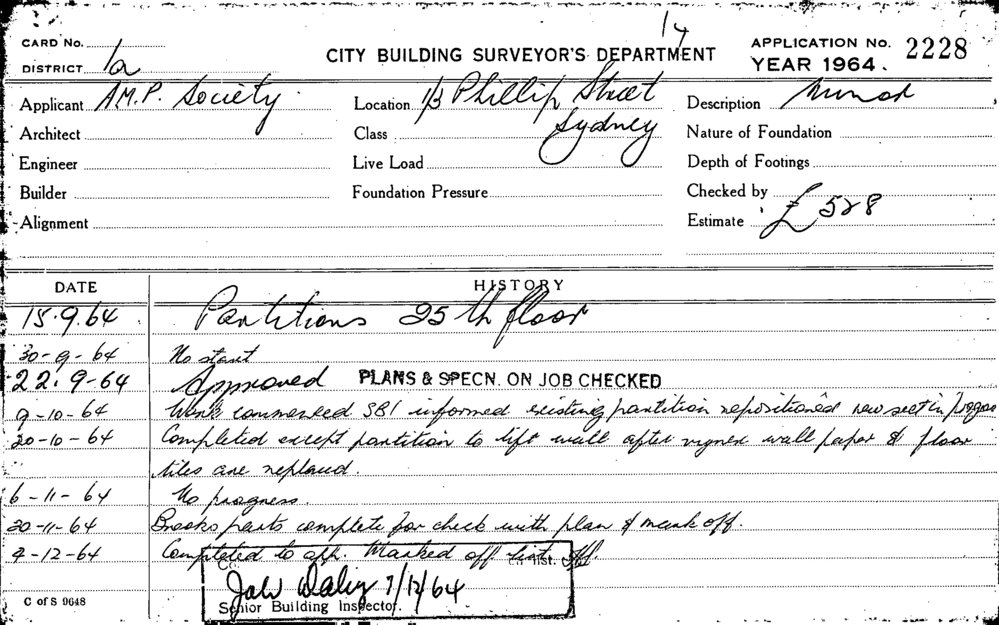 14
CARD No.
CITY BUILDING SURVEYOR'S DEPARTMENT
APPLICATION No. 2228
DISTRICT 1a
YEAR 1964.
Applicant A.M.P. Society
Location Phillip Street
Description Minor
Architect
Class Sydney
Nature of Foundation
Engineer
Live Load
Depth of Footings
Builder
Foundation Pressure
Checked by
Alignment
Estimate £528
DATE
HISTORY
15.9.64 Partitions 25th floor
30-9-64 No start
22.9-64 Approved PLANS & SPECN. ON JOB CHECKED
9-10-64 Work commenced SBI informed existing partition repositioned new sect in
20-10-64 Completed except partition to lift wall after wall paper & floor
tiles are replaced.
6-11-64 No progress.
30-11-64 parts complete for check with plan & mark off.
4-12-64 Completed to app. Marked off list.
7/12/64
Senior Building Inspector.
C of S 9648